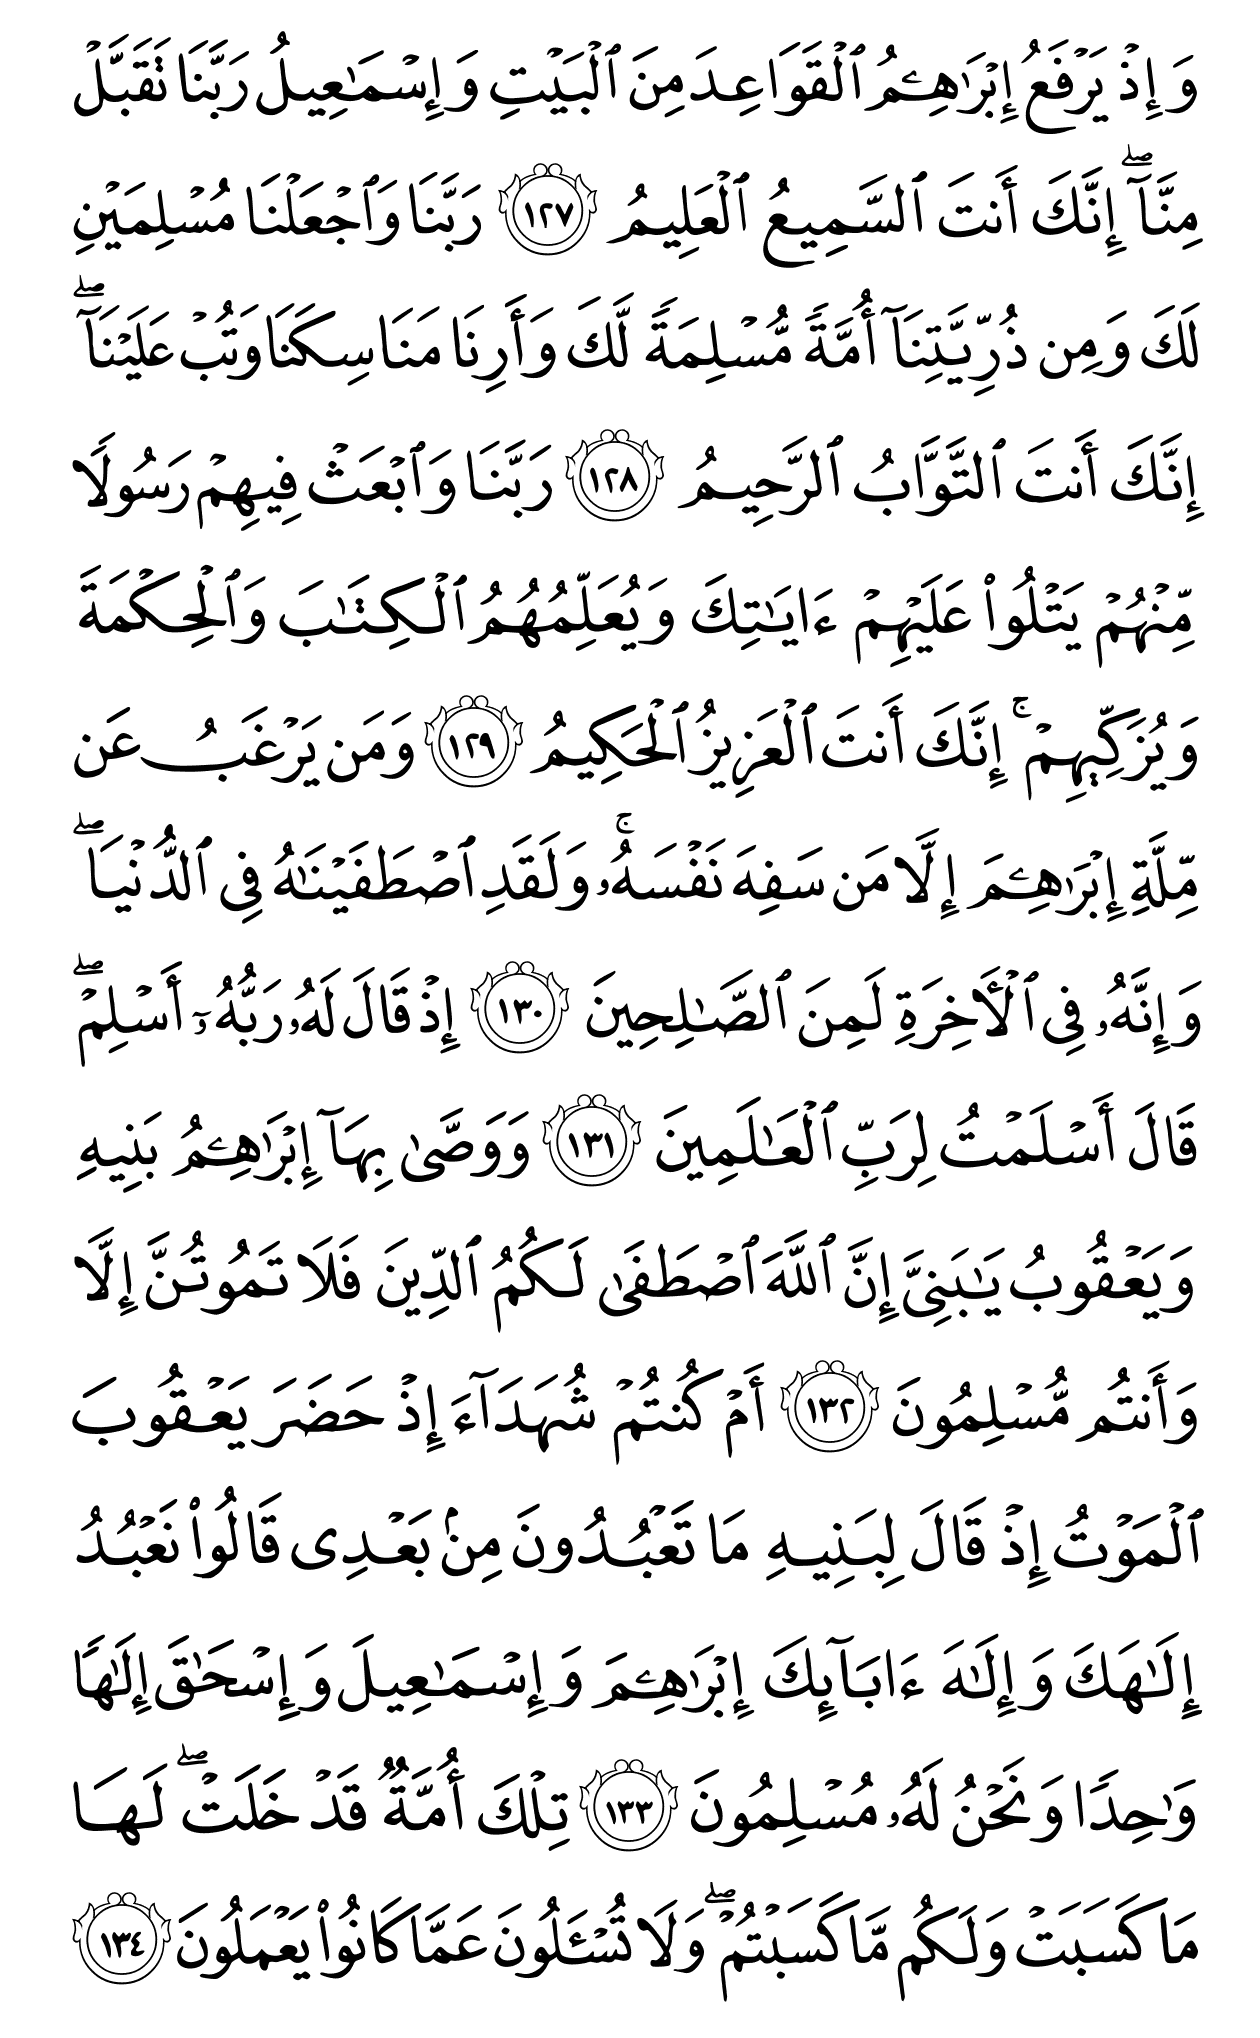 وَإِذْ يَرْفَعُ إِبْرَٰهِـۧمُ ٱلْقَوَاعِدَ مِنَ ٱلْبَيْتِ وَإِسْمَـٰعِيلُ رَبَّنَا تَقَبَّلْ
مِنَّآ ۖ إِنَّكَ أَنتَ ٱلسَّمِيعُ ٱلْعَلِيمُ ١٢٧ رَبَّنَا وَٱجْعَلْنَا مُسْلِمَيْنِ
لَكَ وَمِن ذُرِّيَّتِنَآ أُمَّةً مُّسْلِمَةً لَّكَ وَأَرِنَا مَنَاسِكَنَا وَتُبْ عَلَيْنَآ ۖ
إِنَّكَ أَنتَ ٱلتَّوَّابُ ٱلرَّحِيمُ ١٢٨ رَبَّنَا وَٱبْعَثْ فِيهِمْ رَسُولًا
مِّنْهُمْ يَتْلُوا۟ عَلَيْهِمْ ءَايَـٰتِكَ وَيُعَلِّمُهُمُ ٱلْكِتَـٰبَ وَٱلْحِكْمَةَ
وَيُزَكِّيهِمْ ۚ إِنَّكَ أَنتَ ٱلْعَزِيزُ ٱلْحَكِيمُ ١٢٩ وَمَن يَرْغَبُ عَن
مِّلَّةِ إِبْرَٰهِـۧمَ إِلَّا مَن سَفِهَ نَفْسَهُۥ ۚ وَلَقَدِ ٱصْطَفَيْنَـٰهُ فِى ٱلدُّنْيَا ۖ
وَإِنَّهُۥ فِى ٱلْـَٔاخِرَةِ لَمِنَ ٱلصَّـٰلِحِينَ ١٣٠ إِذْ قَالَ لَهُۥ رَبُّهُۥٓ أَسْلِمْ ۖ
قَالَ أَسْلَمْتُ لِرَبِّ ٱلْعَـٰلَمِينَ ١٣١ وَوَصَّىٰ بِهَآ إِبْرَٰهِـۧمُ بَنِيهِ
وَيَعْقُوبُ يَـٰبَنِىَّ إِنَّ ٱللَّهَ ٱصْطَفَىٰ لَكُمُ ٱلدِّينَ فَلَا تَمُوتُنَّ إِلَّا
وَأَنتُم مُّسْلِمُونَ ١٣٢ أَمْ كُنتُمْ شُهَدَآءَ إِذْ حَضَرَ يَعْقُوبَ
ٱلْمَوْتُ إِذْ قَالَ لِبَنِيهِ مَا تَعْبُدُونَ مِنۢ بَعْدِى قَالُوا۟ نَعْبُدُ
إِلَـٰهَكَ وَإِلَـٰهَ ءَابَآئِكَ إِبْرَٰهِـۧمَ وَإِسْمَـٰعِيلَ وَإِسْحَـٰقَ إِلَـٰهًا
وَٰحِدًا وَنَحْنُ لَهُۥ مُسْلِمُونَ ١٣٣ تِلْكَ أُمَّةٌ قَدْ خَلَتْ ۖ لَهَا
مَا كَسَبَتْ وَلَكُم مَّا كَسَبْتُمْ ۖ وَلَا تُسْـَٔلُونَ عَمَّا كَانُوا۟ يَعْمَلُونَ ١٣٤